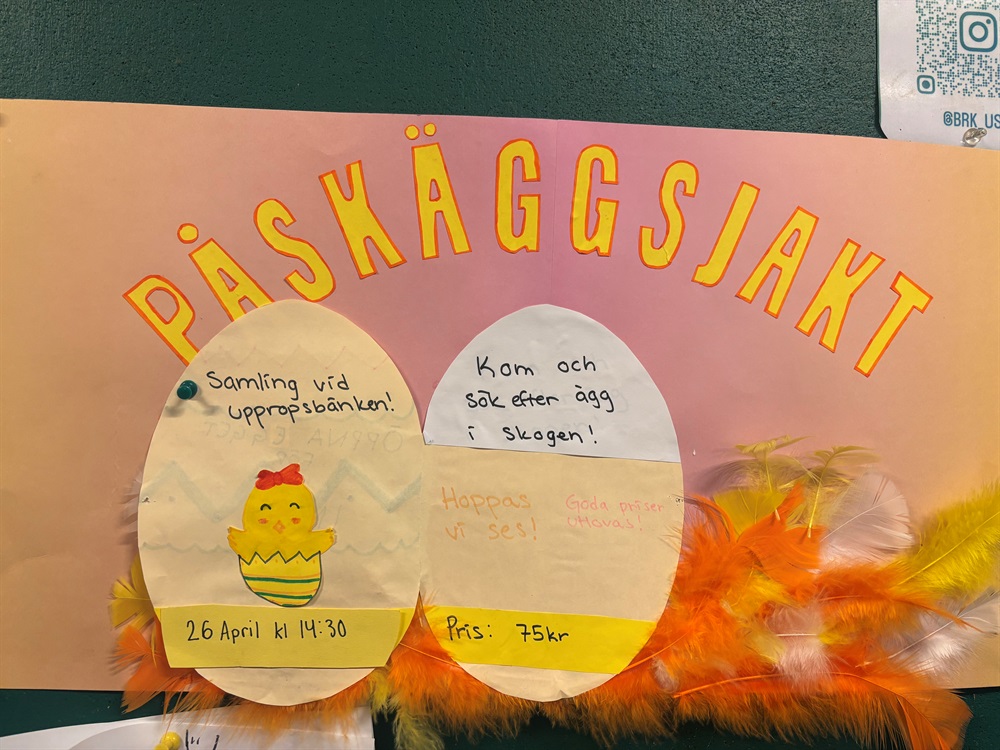 @BRK_US
PÅSKÄGGSJAKT
Samling vid
uppropsbänken!
26 April kl 14:30
Kom och
sök efter ägg
i skogen!
Hoppas
vi ses!
Goda priser
utlovas!
Pris: 75kr